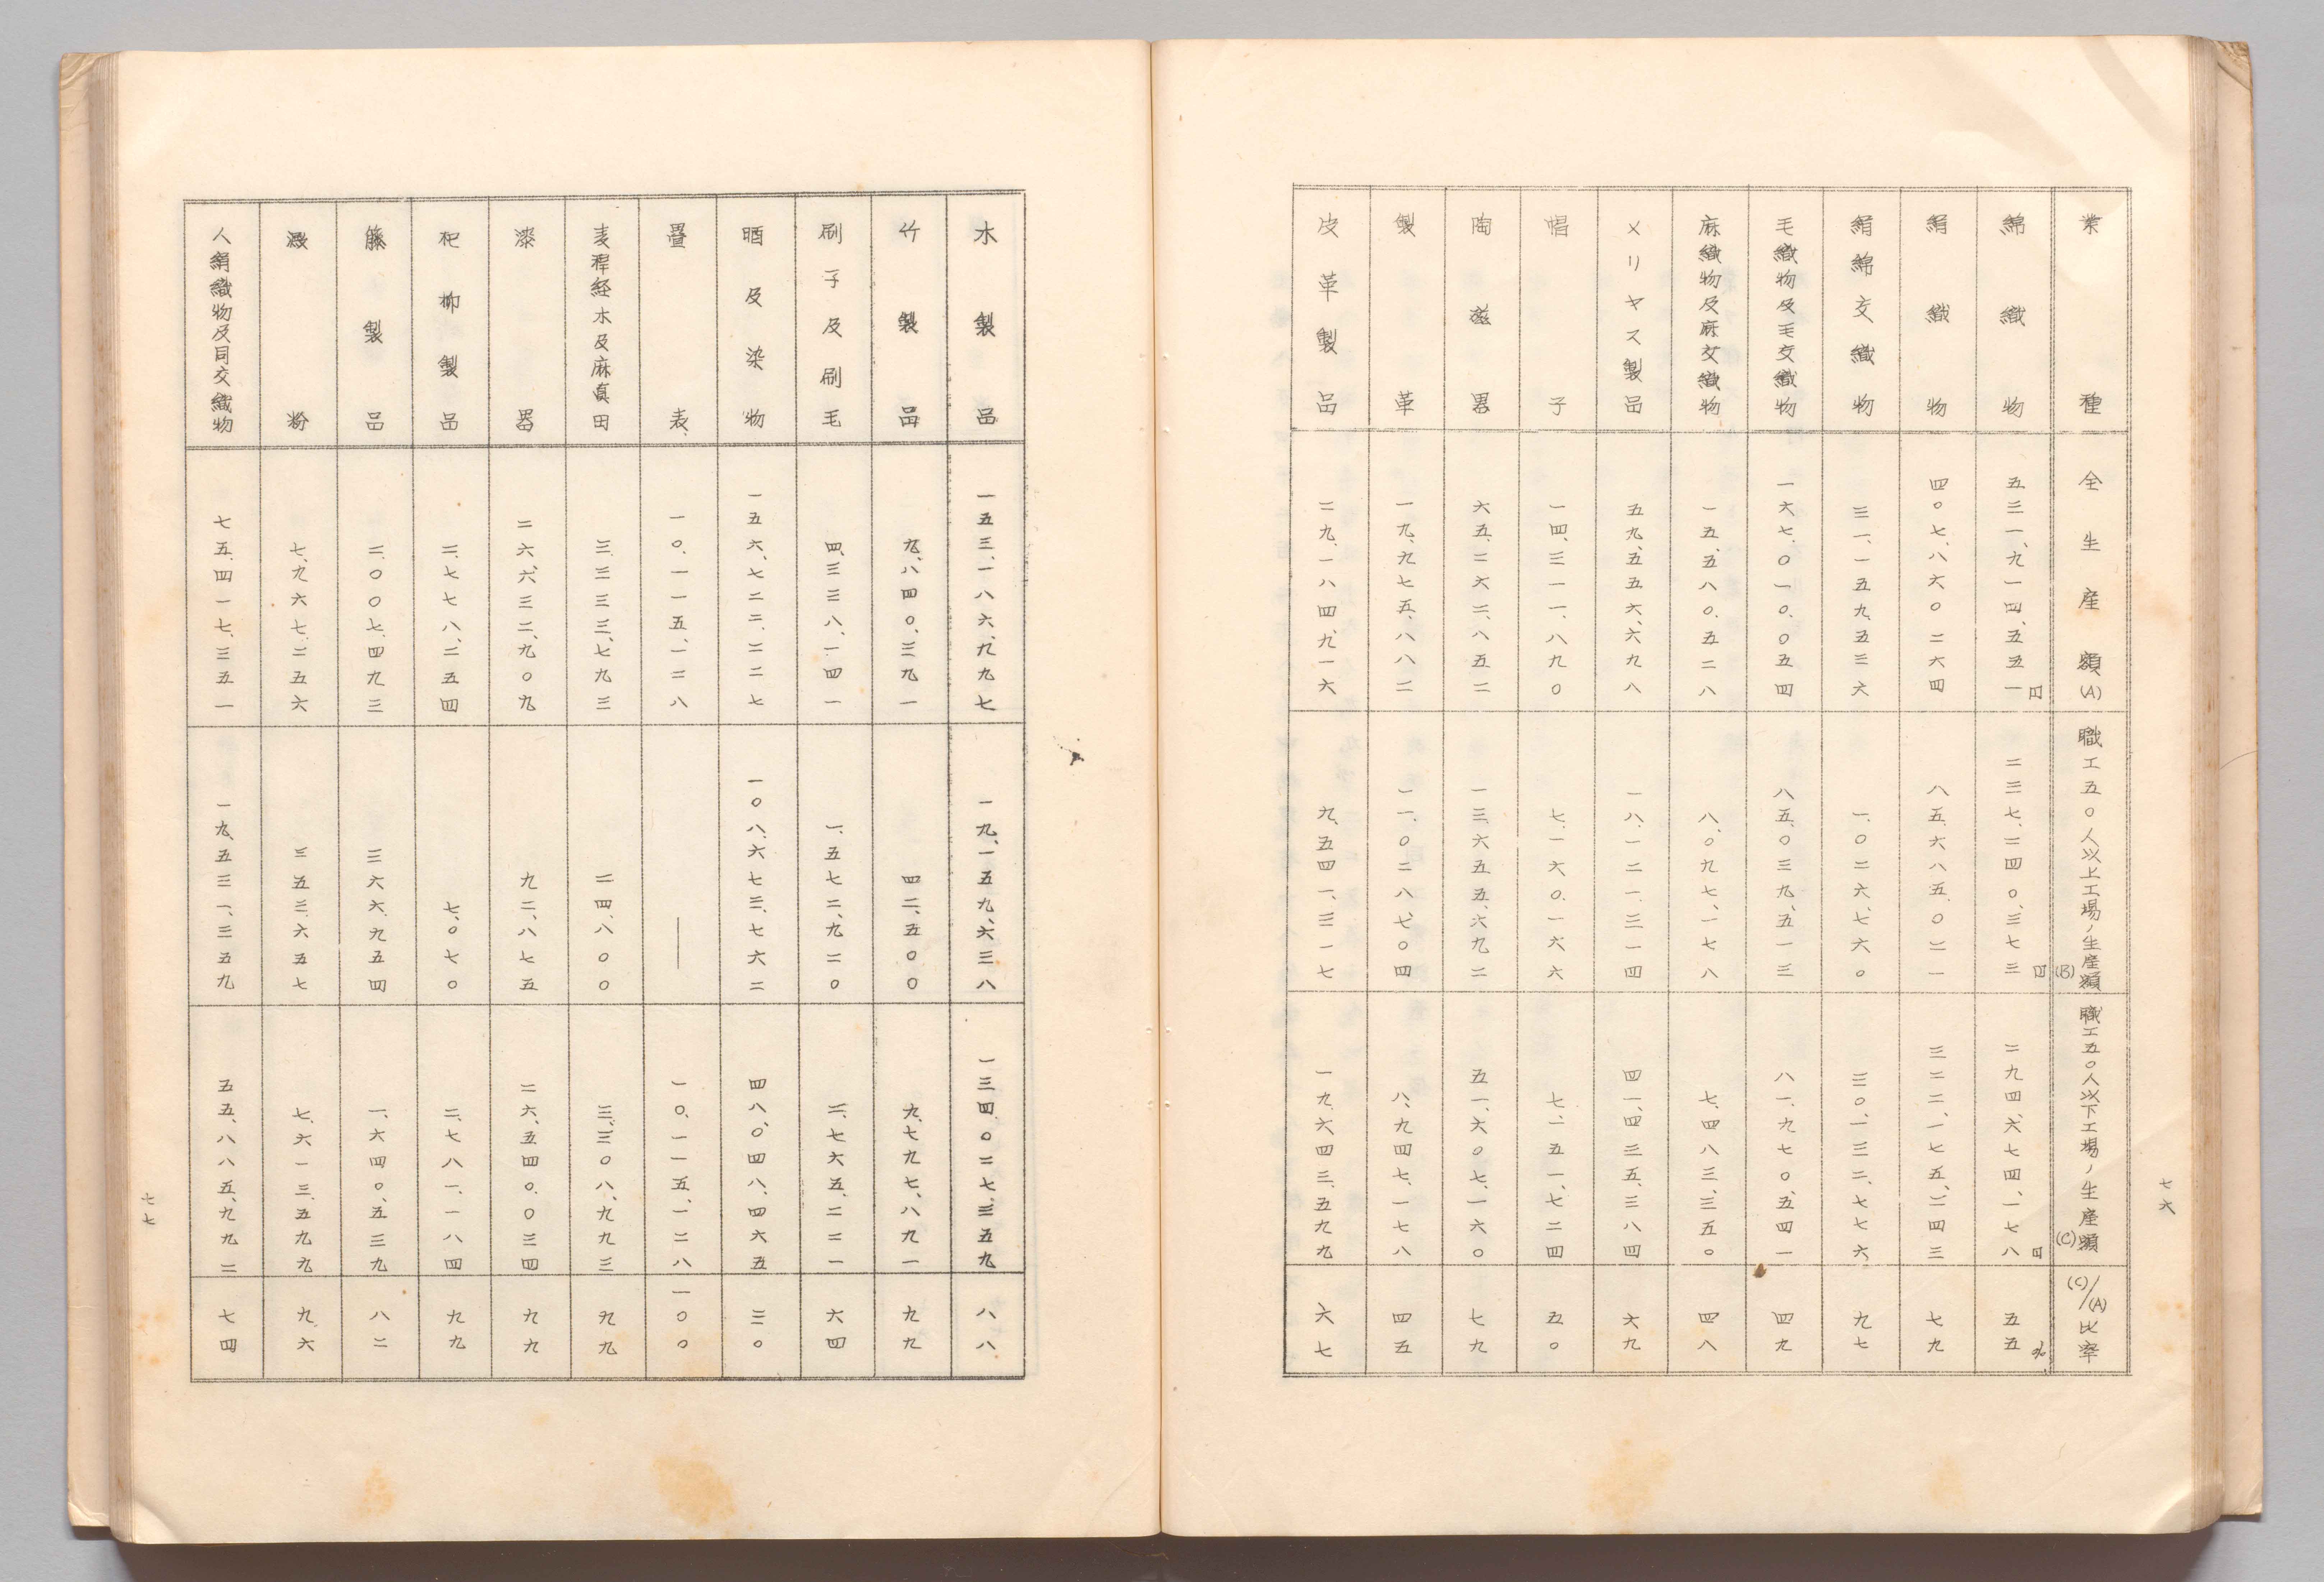 業種 全生産額(A) 職工五〇人以上工場ノ生産額(B) 職工五〇人以下工場ノ生産額(C) (C)/(A)比率
綿織物 五三一、九一四、五五一円 二三七、二四〇、三七三円 二九四、六七四、一七八円 五五%
絹織物 四〇七、八六〇、二六四 八五、六八五、〇二一 三二二、一七五、二四三 七九
絹綿交織物 三一、一五九、五三六 一、〇二六、七六〇 三〇、一三二、七七六 九七
毛織物及毛交織物 一六七、〇一〇、〇五四 八五、〇三九、五一三 八一、九七〇、五四一 四九
麻織物及麻交織物 一五、五八〇、五二八 八、〇九七、一七八 七、四八三、三五〇 四八
メリヤス製品 五九、五五六、六九八 一八、一二一、三一四 四一、四三五、三八四 六九
帽子 一四、三一一、八九〇 七、一六〇、一六六 七、一五一、七二四 五〇
陶磁器 六五、二六二、八五二 一三、六五五、六九二 五一、六〇七、一六〇 七九
製革 一九、九七五、八八二 一一、〇二八、七〇四 八、九四七、一七八 四五
皮革製品 二九、一八四、九一六 九、五四一、三一七 一九、六四三、五九九 六七
七六
木製品 一五三、一八六、九九七 一九、一五九、六三八 一三四、〇二七、三五九 八八
竹製品 九、八四〇、三九一 四二、五〇〇 九、七九七、八九一 九九
刷子及刷毛 四、三三八、一四一 一、五七二、九二〇 二、七六五、二二一 六四
晒及染物 一五六、七二二、二二七 一〇八、六七三、七六二 四八、〇四八、四六五 三〇
畳表 一〇、一一五、一二八 ── 一〇、一一五、一二八 一〇〇
麦稈経木及麻真田 三、三三三、七九三 二四、八〇〇 三、三〇八、九九三 九九
漆器 二六、六三二、九〇九 九二、八七五 二六、五四〇、〇三四 九九
杞柳製品 二、七七八、二五四 七、〇七〇 二、七八一、一八四 九九
籐製品 二、〇〇七、四九三 三六六、九五四 一、六四〇、五三九 八二
澱粉 七、九六七、二五六 三五三、六五七 七、六一三、五九九 九六
人絹織物及同交織物 七五、四一七、三五一 一九、五三一、三五九 五五、八八五、九九二 七四
七七